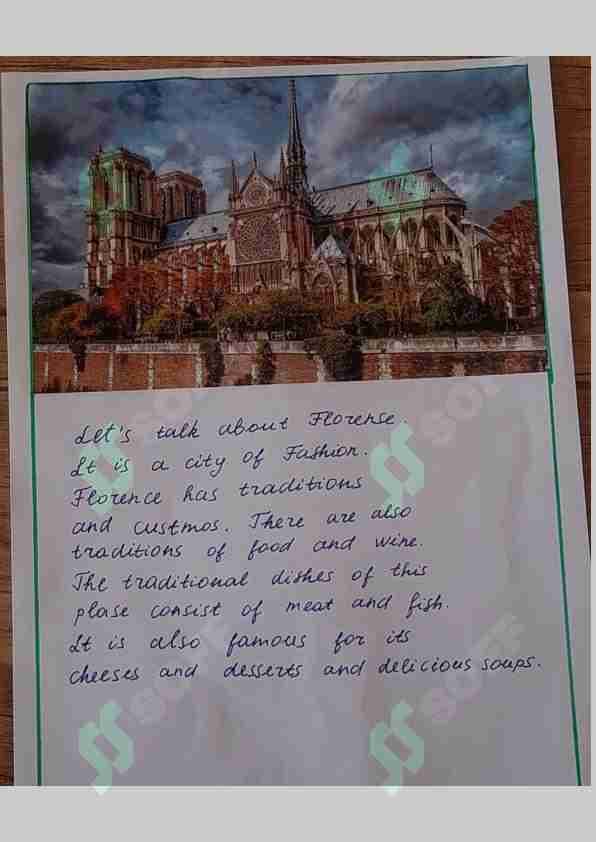 Let's talk about Florense.
It is a city of Fashion.
Florence has traditions
and custmos. There are also
traditions of food and wine.
The traditional dishes of this
plase consist of meat and fish.
It is also famous for its
cheeses and desserts and delicious soups.
SOFF
SOFF
SOFF
SOFF